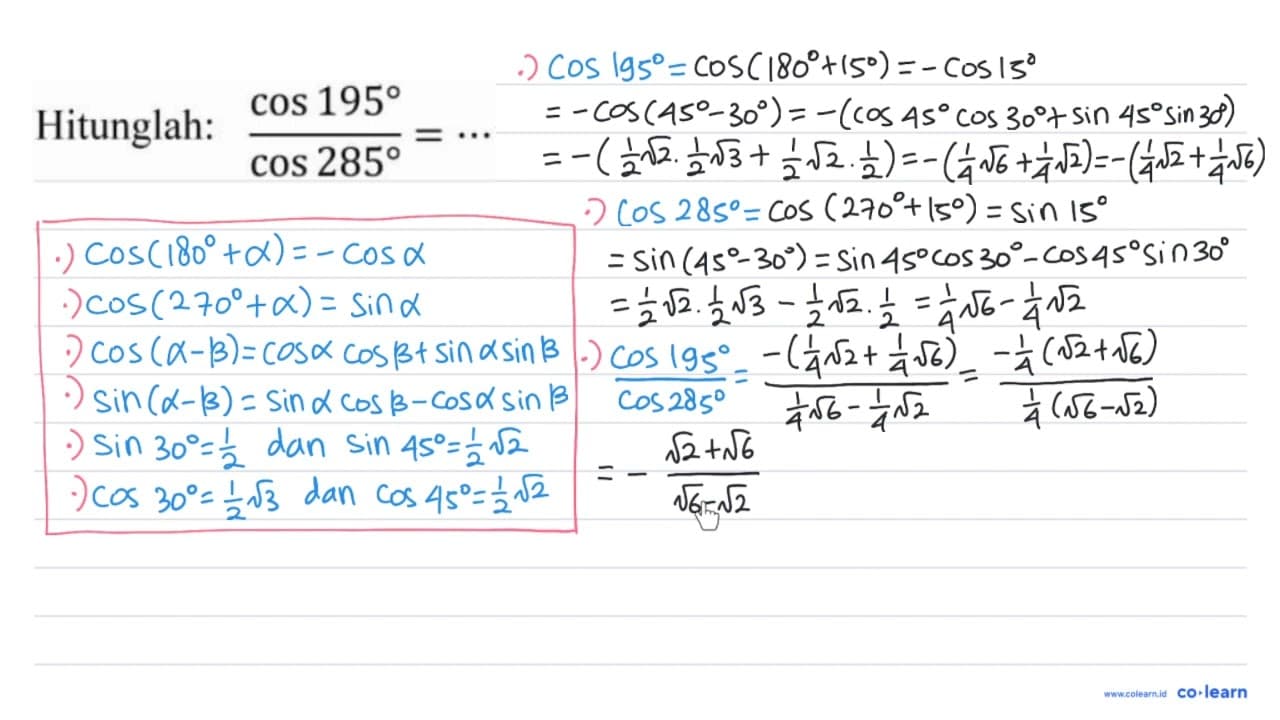 Hitunglah: cos 195° / cos 285° = ...
·) cos(180°+α) = -cos α
·) cos(270°+α) = sin α
·) cos(α-β) = cos α cos β + sin α sin β
·) sin(α-β) = sin α cos β - cos α sin β
·) sin 30° = 1/2 dan sin 45° = 1/2 √2
·) cos 30° = 1/2 √3 dan cos 45° = 1/2 √2
·) cos 195° = cos(180°+15°) = -cos 15°
= -cos(45°-30°) = -(cos 45° cos 30° + sin 45° sin 30°)
= -(1/2 √2 . 1/2 √3 + 1/2 √2 . 1/2) = -(1/4 √6 + 1/4 √2) = -(1/4 √2 + 1/4 √6)
·) cos 285° = cos (270°+15°) = sin 15°
= sin(45°-30°) = sin 45° cos 30° - cos 45° sin 30°
= 1/2 √2 . 1/2 √3 - 1/2 √2 . 1/2 = 1/4 √6 - 1/4 √2
·) cos 195° / cos 285° = -(1/4 √2 + 1/4 √6) / (1/4 √6 - 1/4 √2) = -1/4 (√2+√6) / 1/4 (√6-√2)
= - (√2+√6) / (√6-√2)
www.colearn.id co·learn